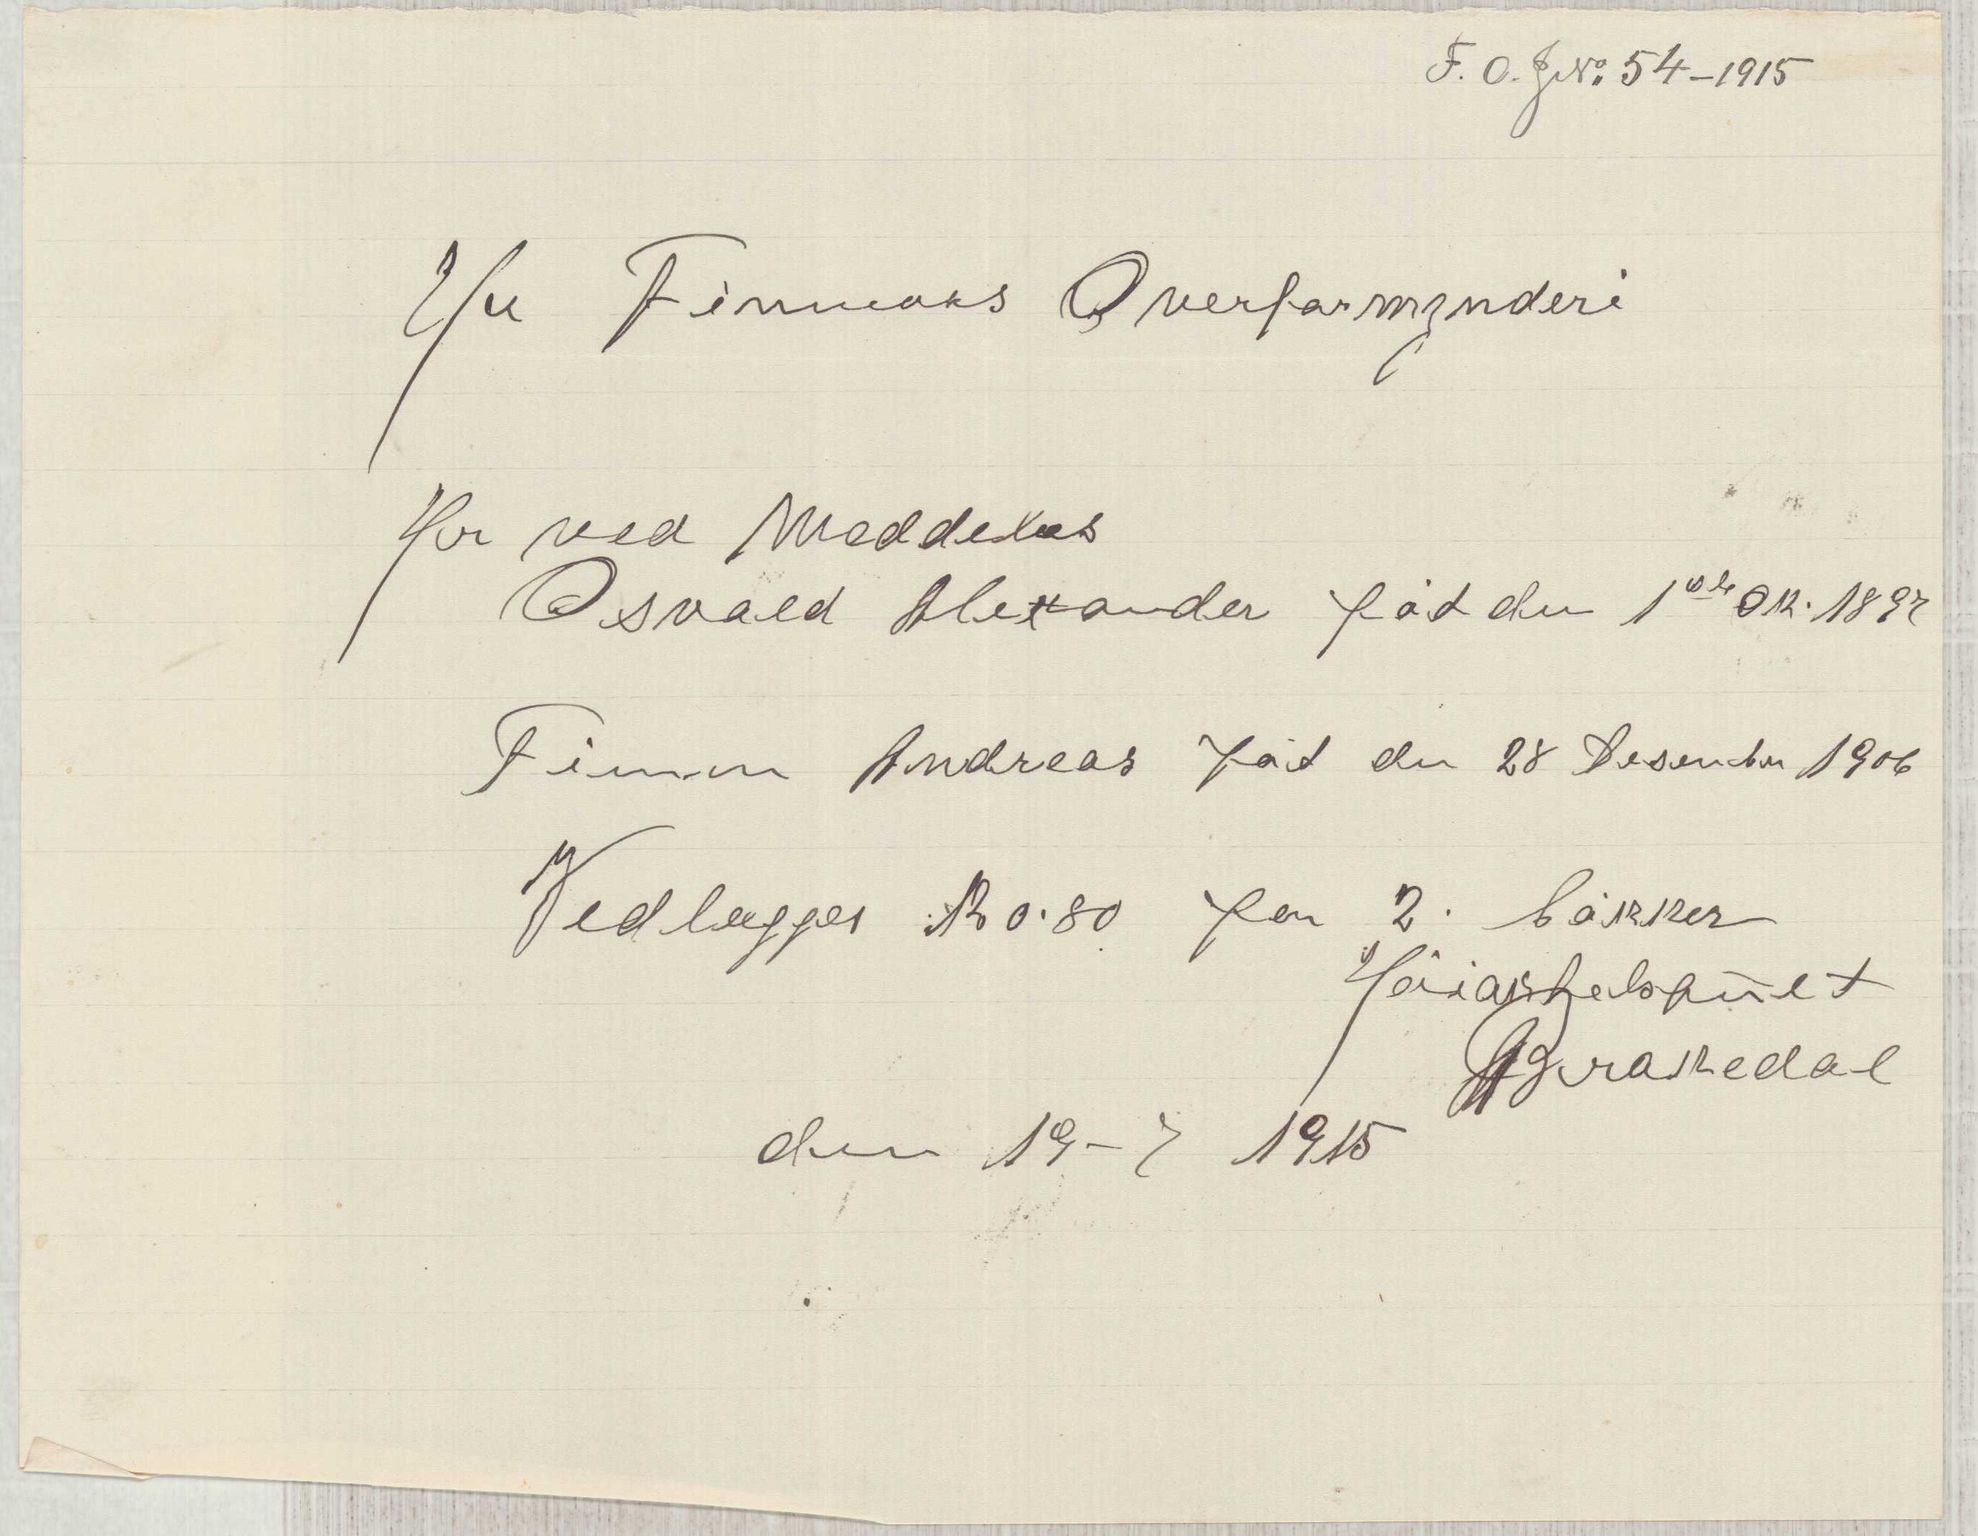 F. O. J No. 54-1915
Til Finmarks Overformynderi
Her ved Meddeles
Osvald Alexanderføt den 1ste Ok. 1897
Finnn Andreas føt den 28 Desember 1906
Vedlægges K 0.80 for 2. bökker
Höiagtelsfult
A Brakedal
den 19-7 1915